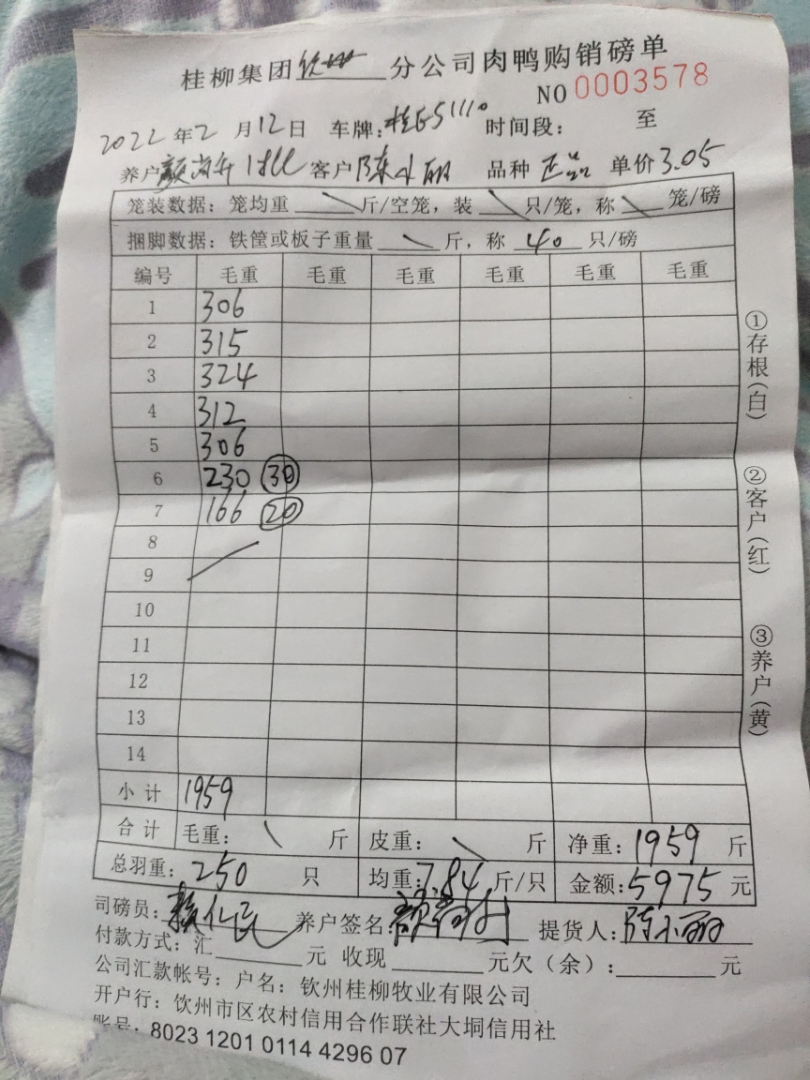 桂柳集团钦州分公司肉鸭购销磅单
NO 0003578
2022年2月12日 车牌:桂E51110 时间段: 至
养户 客户陈小丽 品种 正品 单价3.05
笼装数据：笼均重 斤/空笼，装 只/笼，称 笼/磅
捆脚数据：铁筐或板子重量 斤，称 40 只/磅
编号 毛重 毛重 毛重 毛重 毛重 毛重
1 306
2 315
3 324
4 312
5 306
6 230 30
7 166 20
8
9
10
11
12
13
14
小计 1959
合计 毛重： 斤 皮重： 斤 净重：1959 斤
总羽重：250 只 均重：7.84 斤/只 金额：5975 元
司磅员： 养户签名 提货人：陈小丽
付款方式：汇 元 收现 元欠（余）： 元
公司汇款帐号：户名：钦州桂柳牧业有限公司
开户行：钦州市区农村信用合作联社大垌信用社
账号：8023 1201 0114 4296 07
①存根(白)
②客户(红)
③养户(黄)